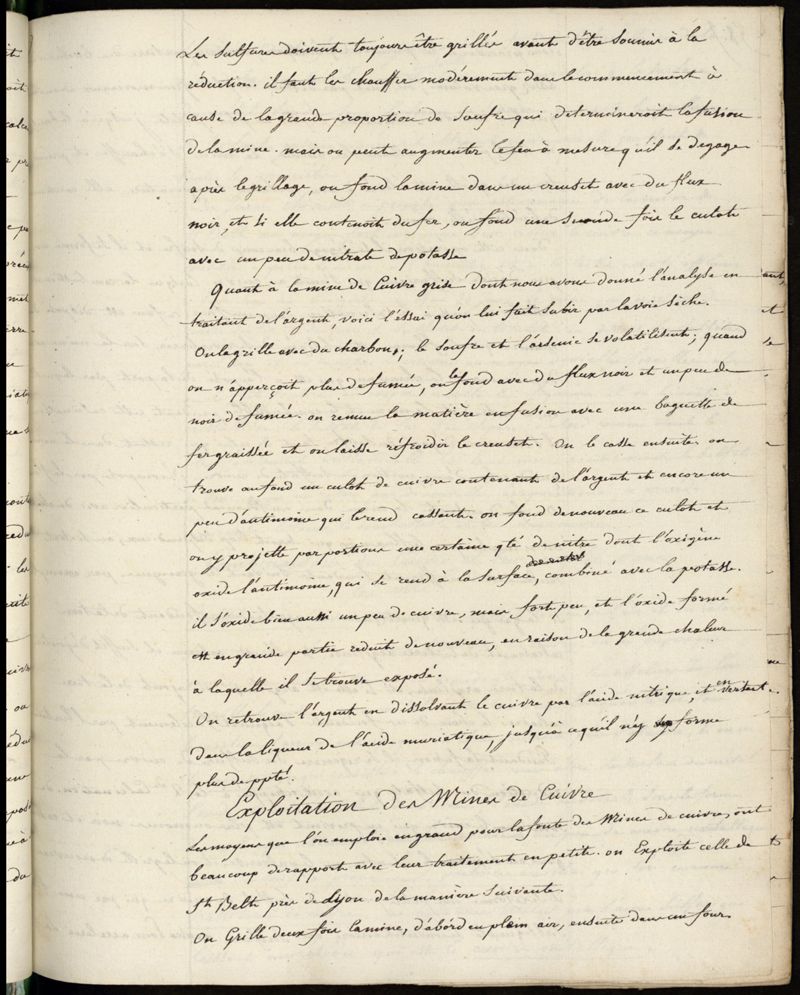 Les sulfures doivent toujours être grillés avant d'être soumis à la
réduction. il faut les chauffer modérement dans le commencement à
cause de la grande proportion de soufre qui détermineroit la fusion
de la mine. mais on peut augmenter le feu à mesure qu'il se degage
après le grillage, on fond la mine dans un creuset avec du flux
noir, et si elle contenoit du fer, on fond une seconde fois le culot
avec un peu de nitrate de potasse
Quant à la mine de Cuivre grise dont nous avons donné l'analyse en
traitant de l'argent, voici l'essai qu'on lui fait subir par la voie sèche.
On la grille avec du charbon; le soufre et l'arsenic se volatilisent; quand
on n'apperçoit plus de fumée, on la fond avec du flux noir et un peu de
noir de fumée. on remue la matière en fusion avec une baguette de
fer graissée et on laisse réfroidir le creuset. On le casse ensuite. on
trouve au fond un culot de cuivre contenant de l'argent et encore un
peu d'antimoine qui le rend cassant. on fond de nouveau ce culot et
on y projette par portions une certaine qté de nitre dont l'oxigène
oxide l'antimoine, qui se rend à la surface, combiné avec la potasse.
il s'oxide bien aussi un peu de cuivre, mais fort peu, et l'oxide formé
est en grande partie reduit de nouveau, en raison de la grande chaleur
à laquelle il se trouve exposé.
On retrouve l'argent en dissolvant le cuivre par l'acide nitrique, et en versant
dans la liqueur de l'acide muriatique, jusqu'à ce qu'il n'y forme
plus de ppté.
Exploitation des Mines de Cuivre
Les moyens que l'on emploie en grand pour la fonte des Mines de cuivre, ont
beaucoup de rapport avec leur traitement en petit. on Exploite celle de
St. Belh près de Lyon de la manière suivante.
On Grille deux fois la mine, d'abord en plein air, ensuite dans un four